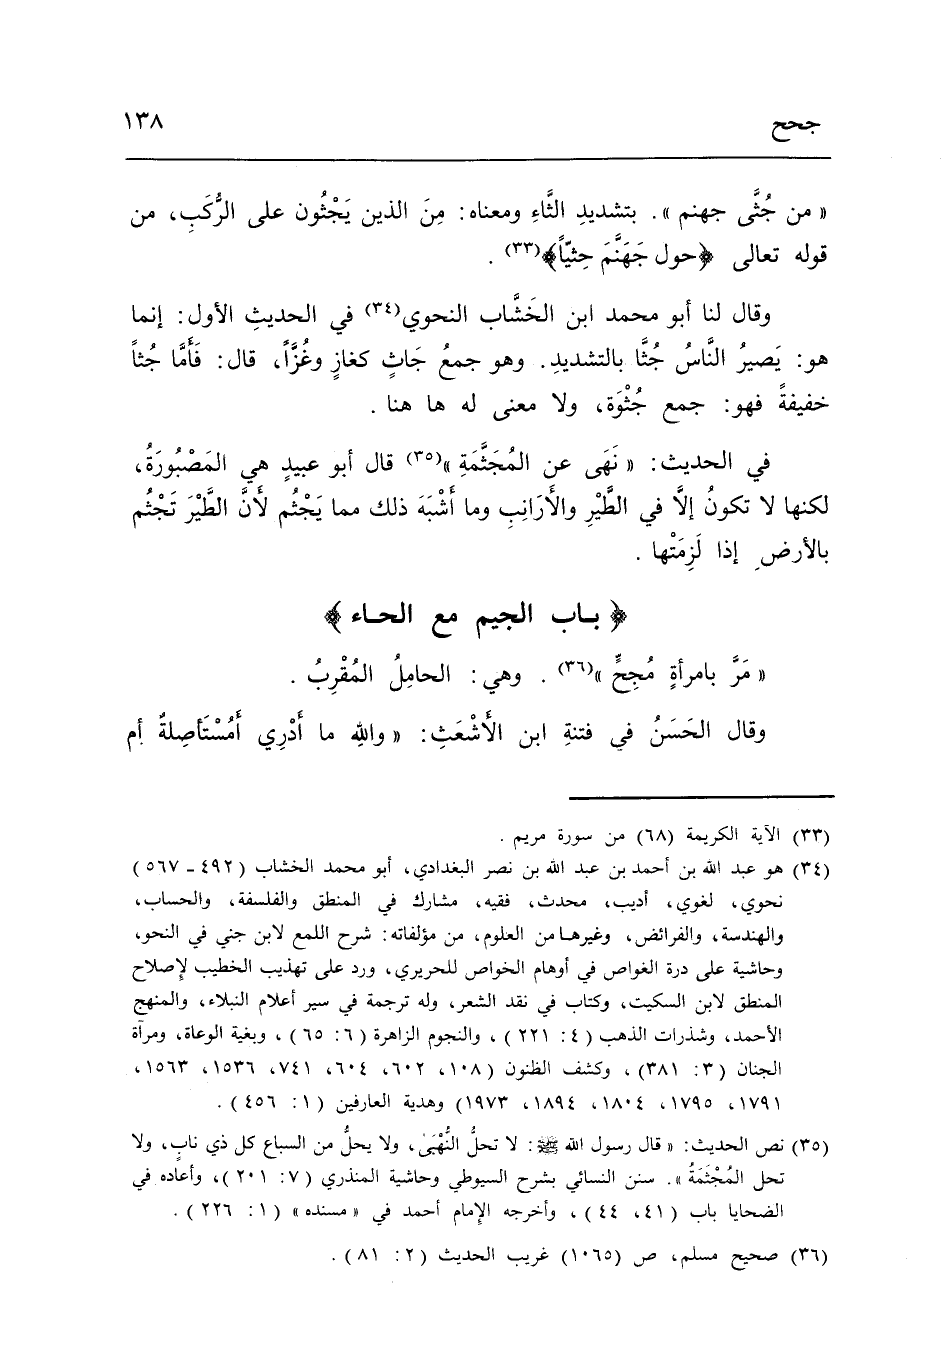 جحح ١٣٨
« من جُثَّى جهنم ». بتشديدِ الثَّاءِ ومعناه: مِنَ الذين يَجْثُون على الرُّكَبِ، من
قوله تعالى ﴿حول جَهَنَّمَ جِثيّاً﴾(٣٣) .
وقال لنا أبو محمد ابن الخَشَّاب النحوي(٣٤) في الحديثِ الأول: إنما
هو: يَصيرُ النَّاسُ جُثَّا بالتشديدِ. وهو جمعُ جَاثٍ كغازٍ وغُزَّاً، قال: فَأَمَّا جُثاً
خفيفةً فهو: جمع جُثْوَة، ولا معنى له ها هنا .
في الحديث: « نَهَى عن المُجَثَّمَةِ »(٣٥) قال أبو عبيدٍ هي المَصْبُورَةُ،
لكنها لا تكونُ إلَّا في الطَّيْرِ والأَرَانِبِ وما أَشْبَهَ ذلك مما يَجْثُم لأَنَّ الطَّيْرَ تَجْثُم
بالأرضِ إذا لَزِمَتْها .
﴿ بـاب الجيم مع الحـاء ﴾
« مَرَّ بامرأةٍ مُجِحٍّ »(٣٦) . وهي: الحامِلُ المُقْرِبُ .
وقال الحَسَنُ في فتنةِ ابن الأَشْعَثِ: « واللهِ ما أَدْرِي أَمُسْتَأصِلةٌ أم
(٣٣) الآية الكريمة (٦٨) من سورة مريم .
(٣٤) هو عبد الله بن أحمد بن عبد الله بن نصر البغدادي، أبو محمد الخشاب (٤٩٢ ـ ٥٦٧)
نحوي، لغوي، أديب، محدث، فقيه، مشارك في المنطق والفلسفة، والحساب،
والهندسة، والفرائض، وغيرهـا من العلوم، من مؤلفاته: شرح اللمع لابن جني في النحو،
وحاشية على درة الغواص في أوهام الخواص للحريري، ورد على تهذيب الخطيب لإصلاح
المنطق لابن السكيت، وكتاب في نقد الشعر، وله ترجمة في سير أعلام النبلاء، والمنهج
الأحمد، وشذرات الذهب (٤: ٢٢١) ، والنجوم الزاهرة (٦: ٦٥) ، وبغية الوعاة، ومرآة
الجنان (٣: ٣٨١) ، وكشف الظنون (١٠٨، ٦٠٢، ٦٠٤، ٧٤١، ١٥٣٦، ١٥٦٣،
١٧٩١، ١٧٩٥، ١٨٠٤، ١٨٩٤، ١٩٧٣) وهدية العارفين (١: ٤٥٦) .
(٣٥) نص الحديث: « قال رسول الله ﷺ: لا تحلُّ النُّهْبَىٰ، ولا يحلُّ من السباع كل ذي نابٍ، ولا
تحل المُجْثَمَةُ ». سنن النسائي بشرح السيوطي وحاشية المنذري (٧: ٢٠١)، وأعاده في
الضحايا باب (٤١، ٤٤) ، وأخرجه الإمام أحمد في « مسنده » (١: ٢٢٦) .
(٣٦) صحيح مسلم، ص (١٠٦٥) غريب الحديث (٢: ٨١) .